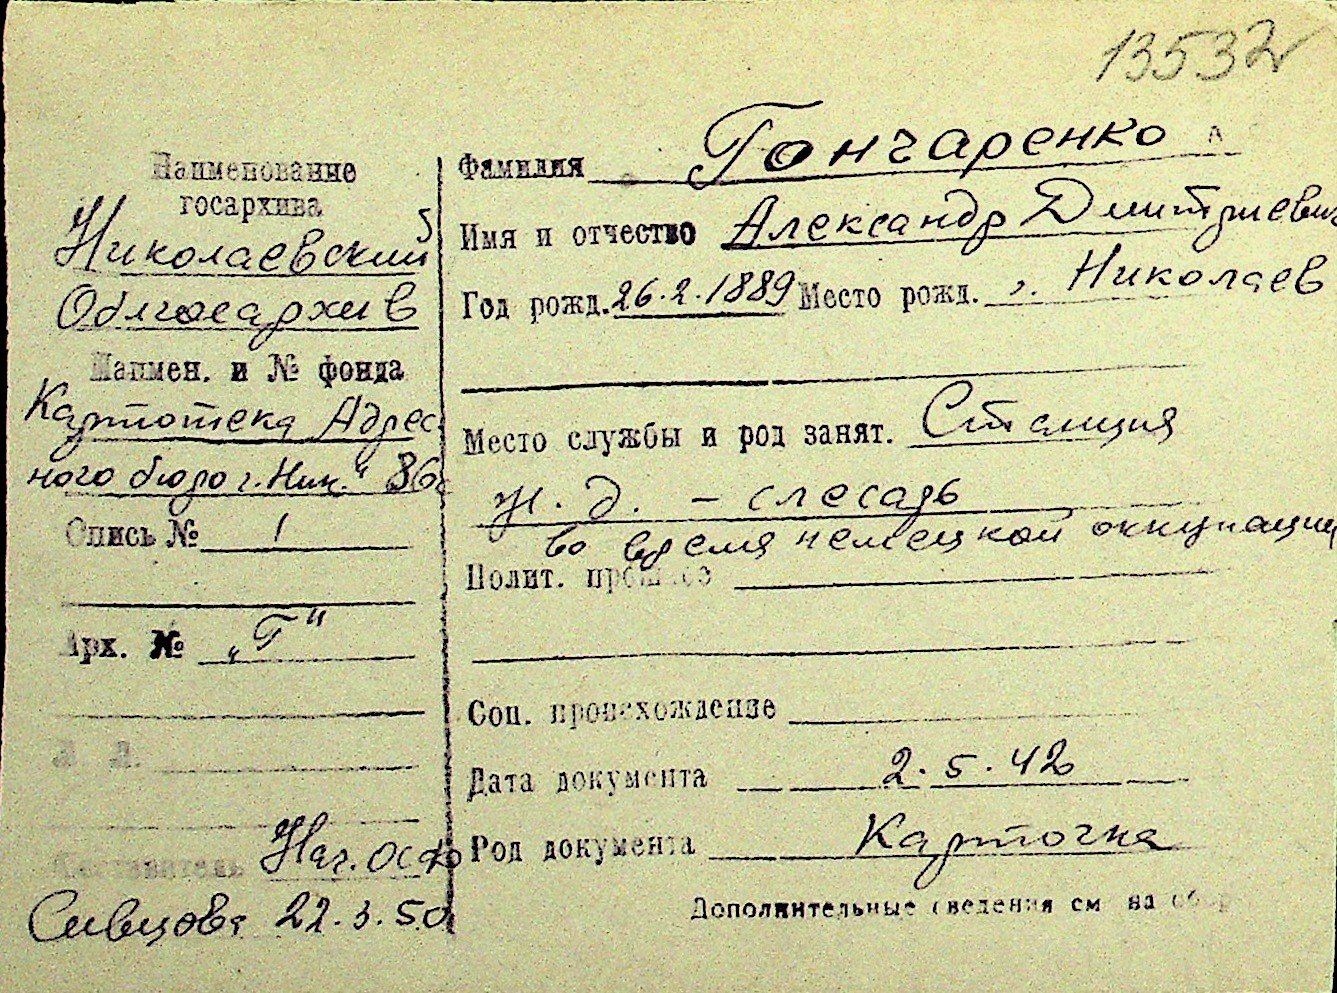 13532
Наименование
госархива
Николаевский
Облгосархив
Наимен. и № фонда
Картотека Адрес
ного бюро г. Ник."
Опись № 1
Арх. № „Г"
Л. Л.
Составитель Нач. ОСФ
Сивцова 22.3.50
Фамилия Гончаренко
Имя и отчество Александр Дмитриевич
Год рожд. 26.2.1889 Место рожд. г. Николаев
Место службы и род занят. Станция
ж.д. - слесарь
во время немецкой оккупации
Полит. прошлое
Соц. происхождение
Дата документа 2.5.42
Род документа Карточка
Дополнительные сведения см на